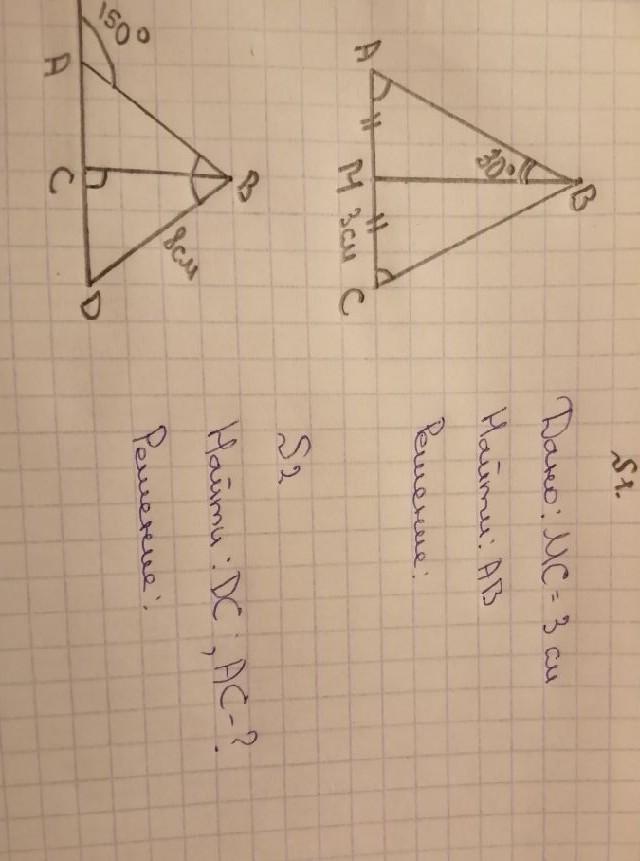 №1.
B
30°
A
M
3см
C
Дано: MC = 3 см
Найти: AB
Решение:
№2
150°
A
B
C
8см
D
Найти: DC; AC-?
Решение: